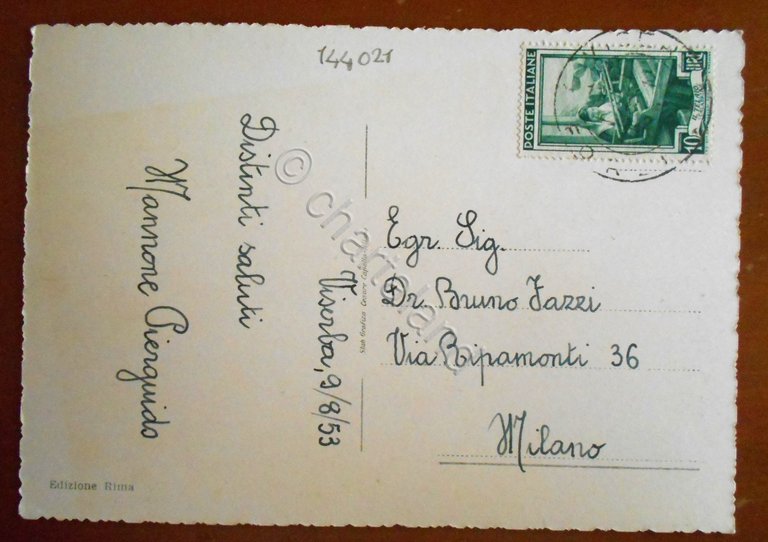 144021
POSTE ITALIANE
10 LIRE
Viserba, 9/8/53
Distinti saluti
Mannone Pierguido
Egr. Sig.
Dr. Bruno Fazzi
Via Ripamonti 36
Milano
Edizione Rima
© chartaland